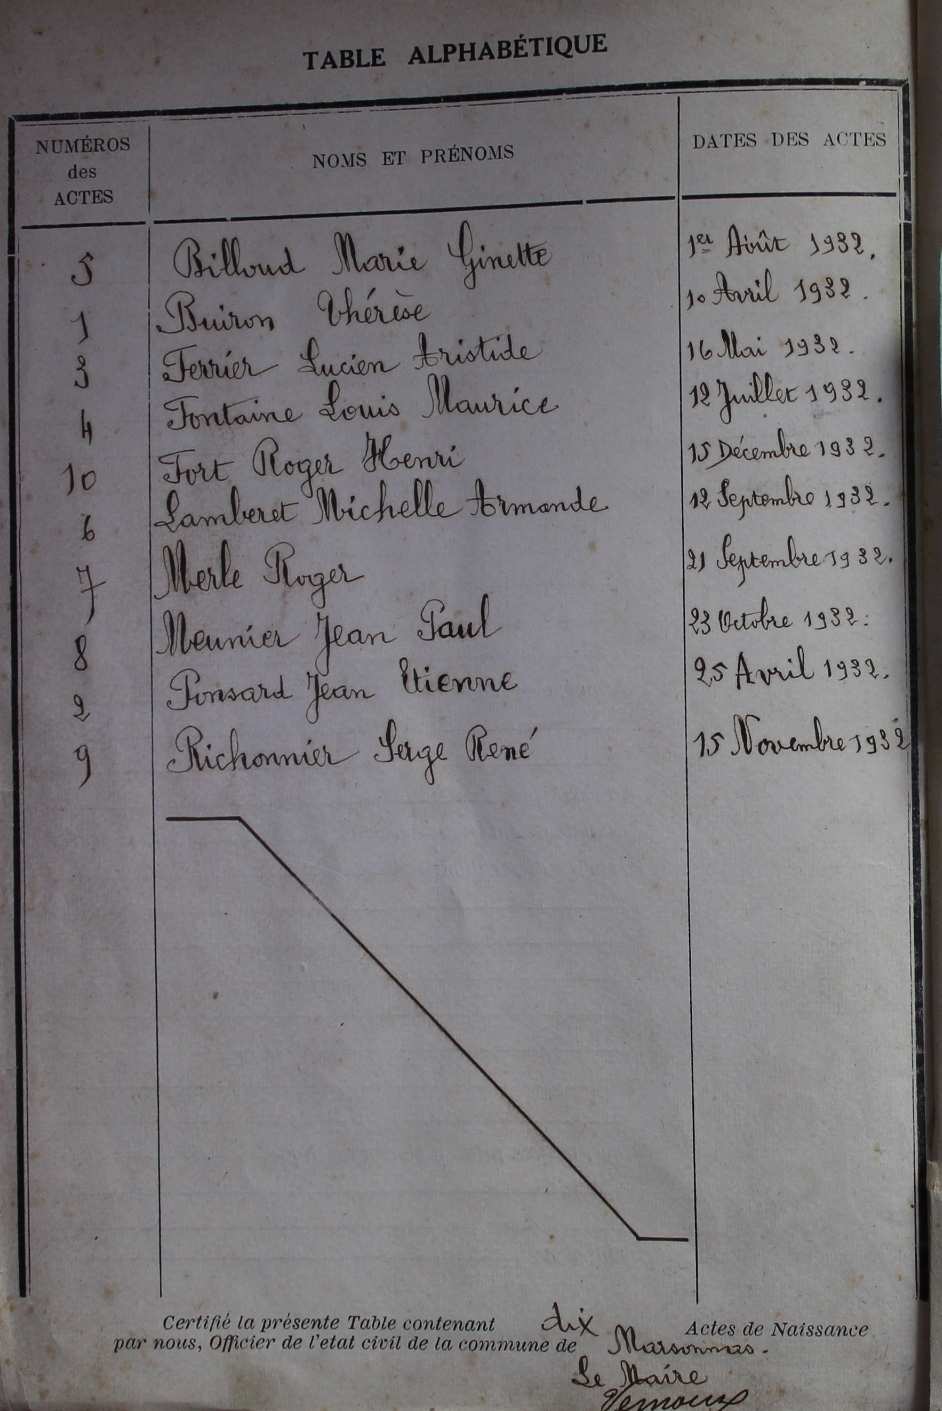 TABLE ALPHABÉTIQUE
NUMÉROS des ACTES NOMS ET PRÉNOMS DATES DES ACTES
5 Billoud Marie Ginette 1er Août 1932.
1 Buiron Thérèse 10 Avril 1932.
3 Ferrier Lucien Aristide 16 Mai 1932.
4 Fontaine Louis Maurice 12 Juillet 1932.
10 Fort Roger Henri 15 Décembre 1932.
6 Lamberet Michelle Armande 12 Septembre 1932.
7 Merle Roger 21 Septembre 1932.
8 Meunier Jean Paul 23 Octobre 1932.
2 Ponsard Jean Etienne 25 Avril 1932.
9 Richonnier Serge René 15 Novembre 1932
Certifié la présente Table contenant dix Actes de Naissance
par nous, Officier de l'etat civil de la commune de Marsonnas.
Le Maire